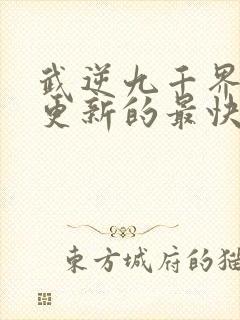 武逆九千界
更新的最快
東方城府的猫